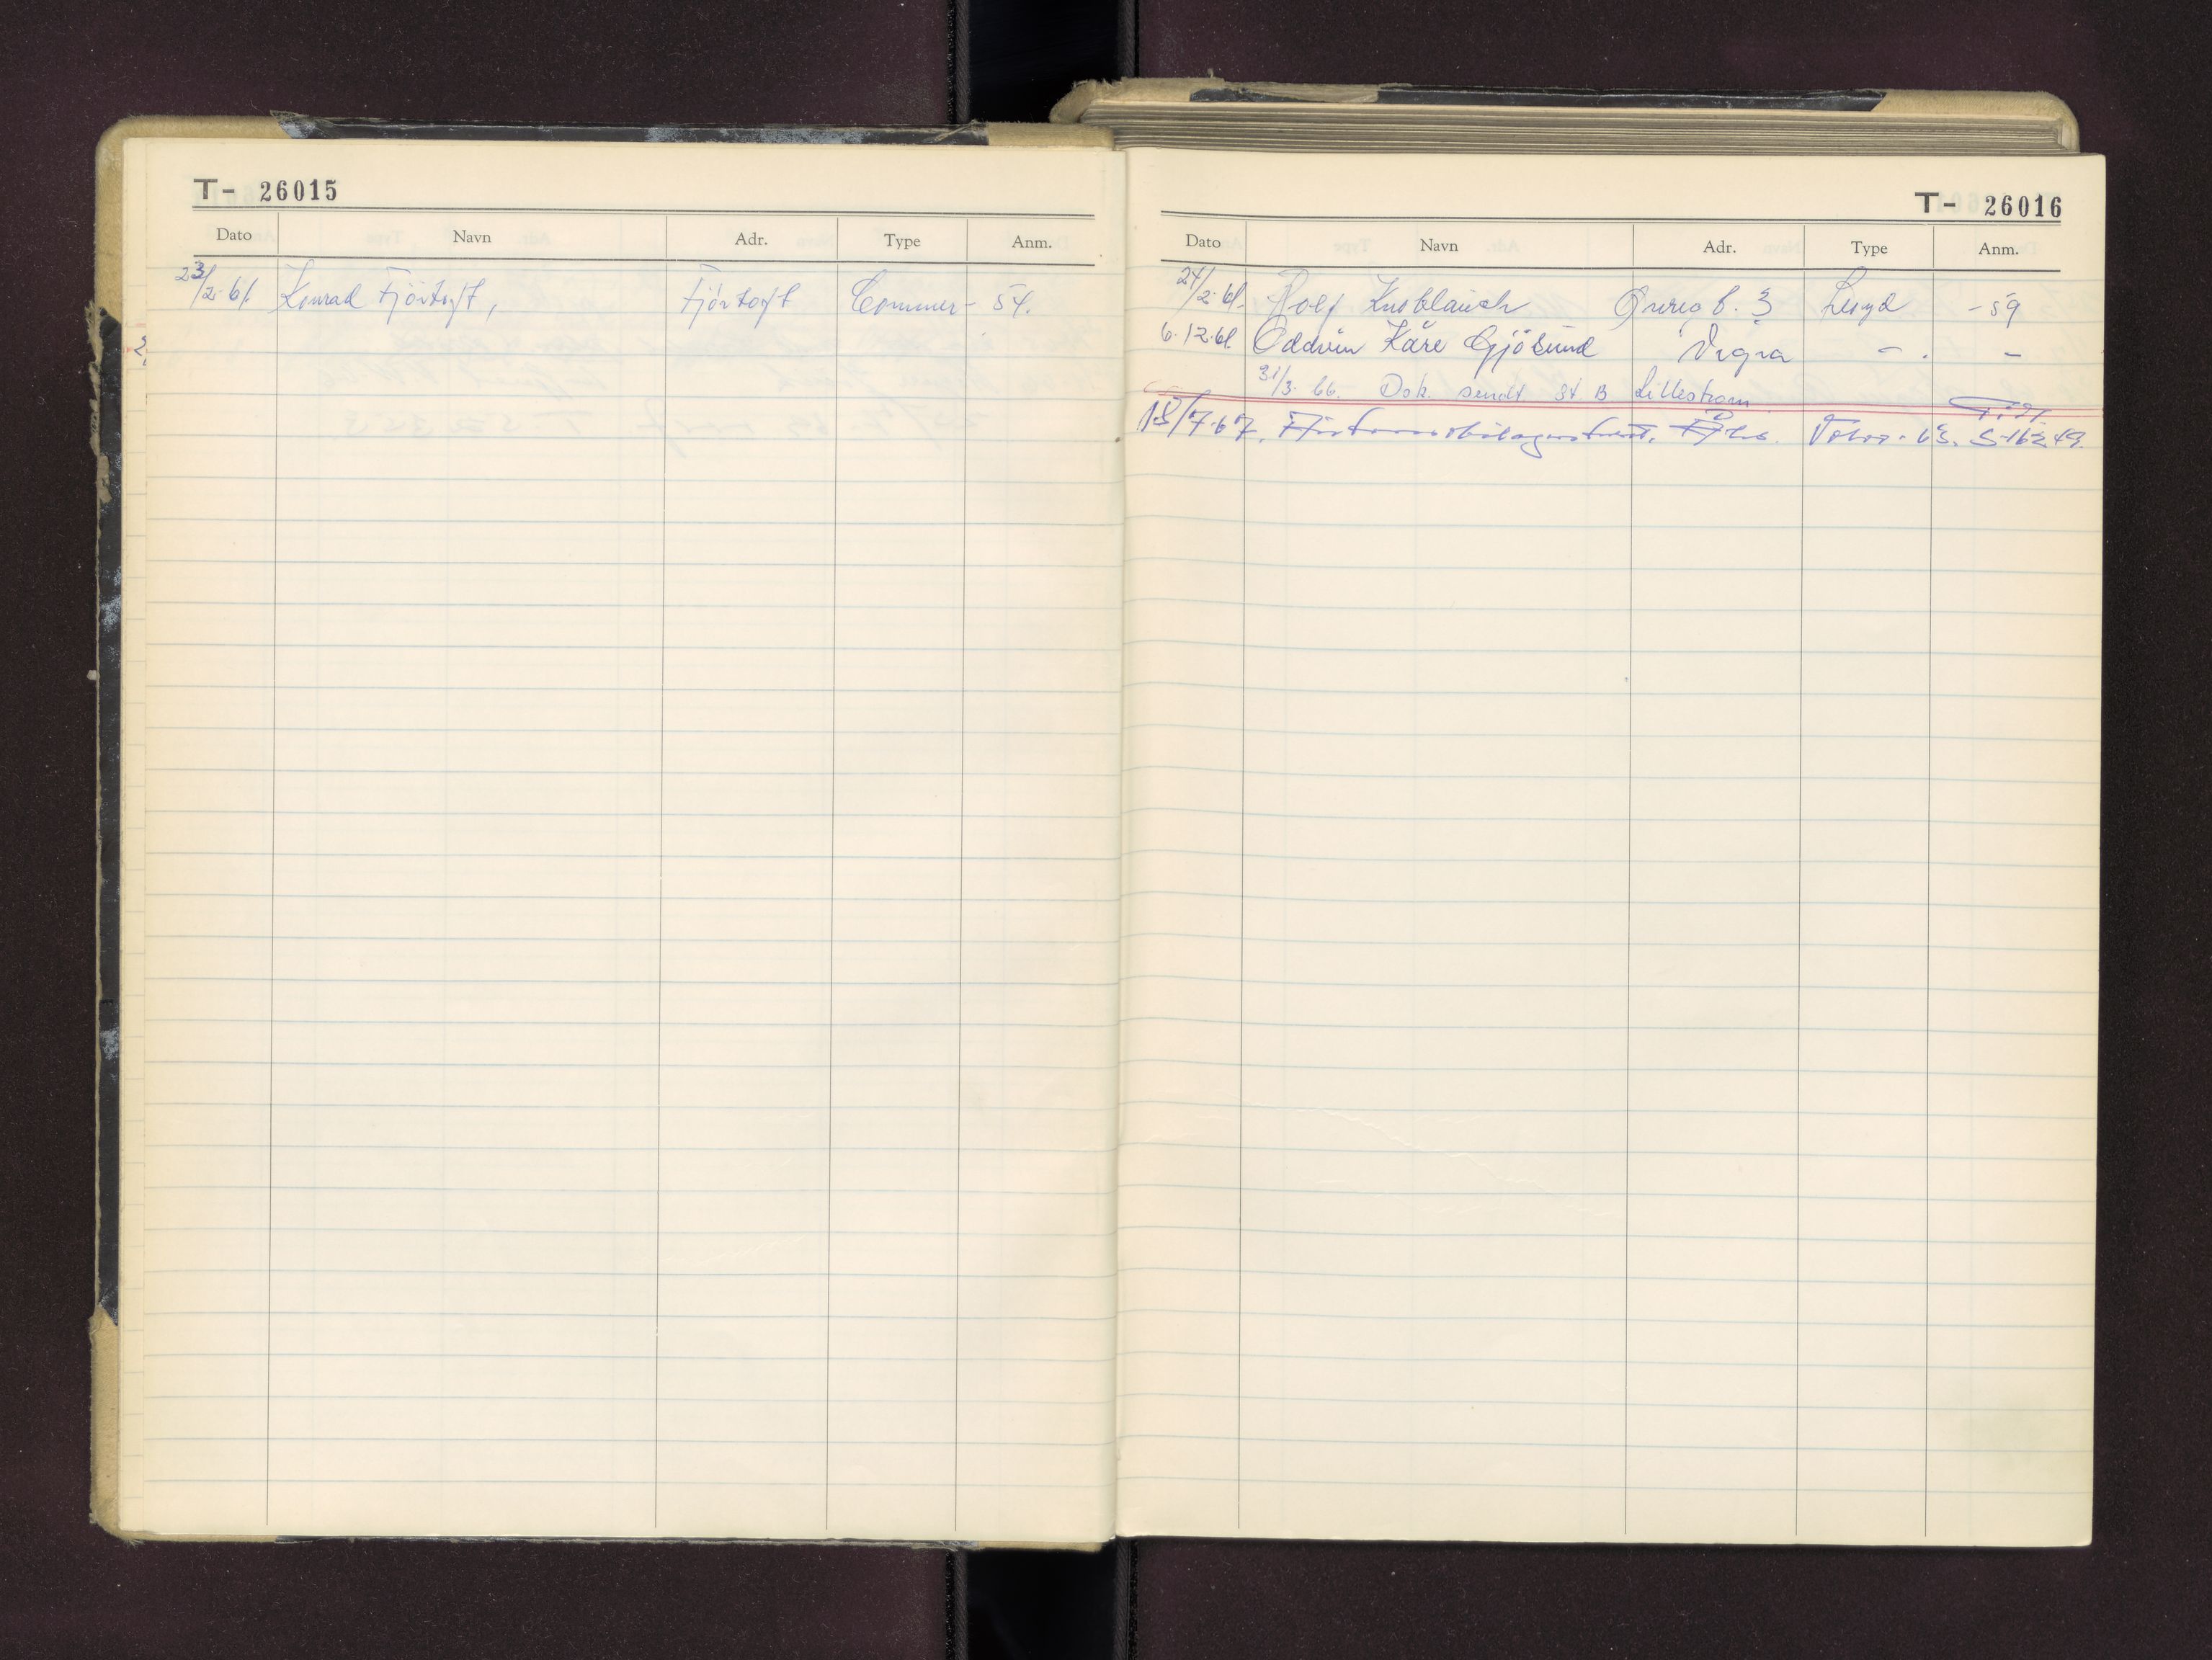 T- 26015
Dato Navn Adr. Type Anm.
23/2-61 Konrad Fjörtoft, Fjörtoft Commer - 54.
T- 26016
Dato Navn Adr. Type Anm.
24/2-61. Rolf Knoblauch b. 3 Leyd -59
6.12.61. Oddvin Kåre Gjösund Vigra - . -
31/3. 66. Dok. sendt St B. Lilleström
18/7-67. Volvo - 63. S-16249.